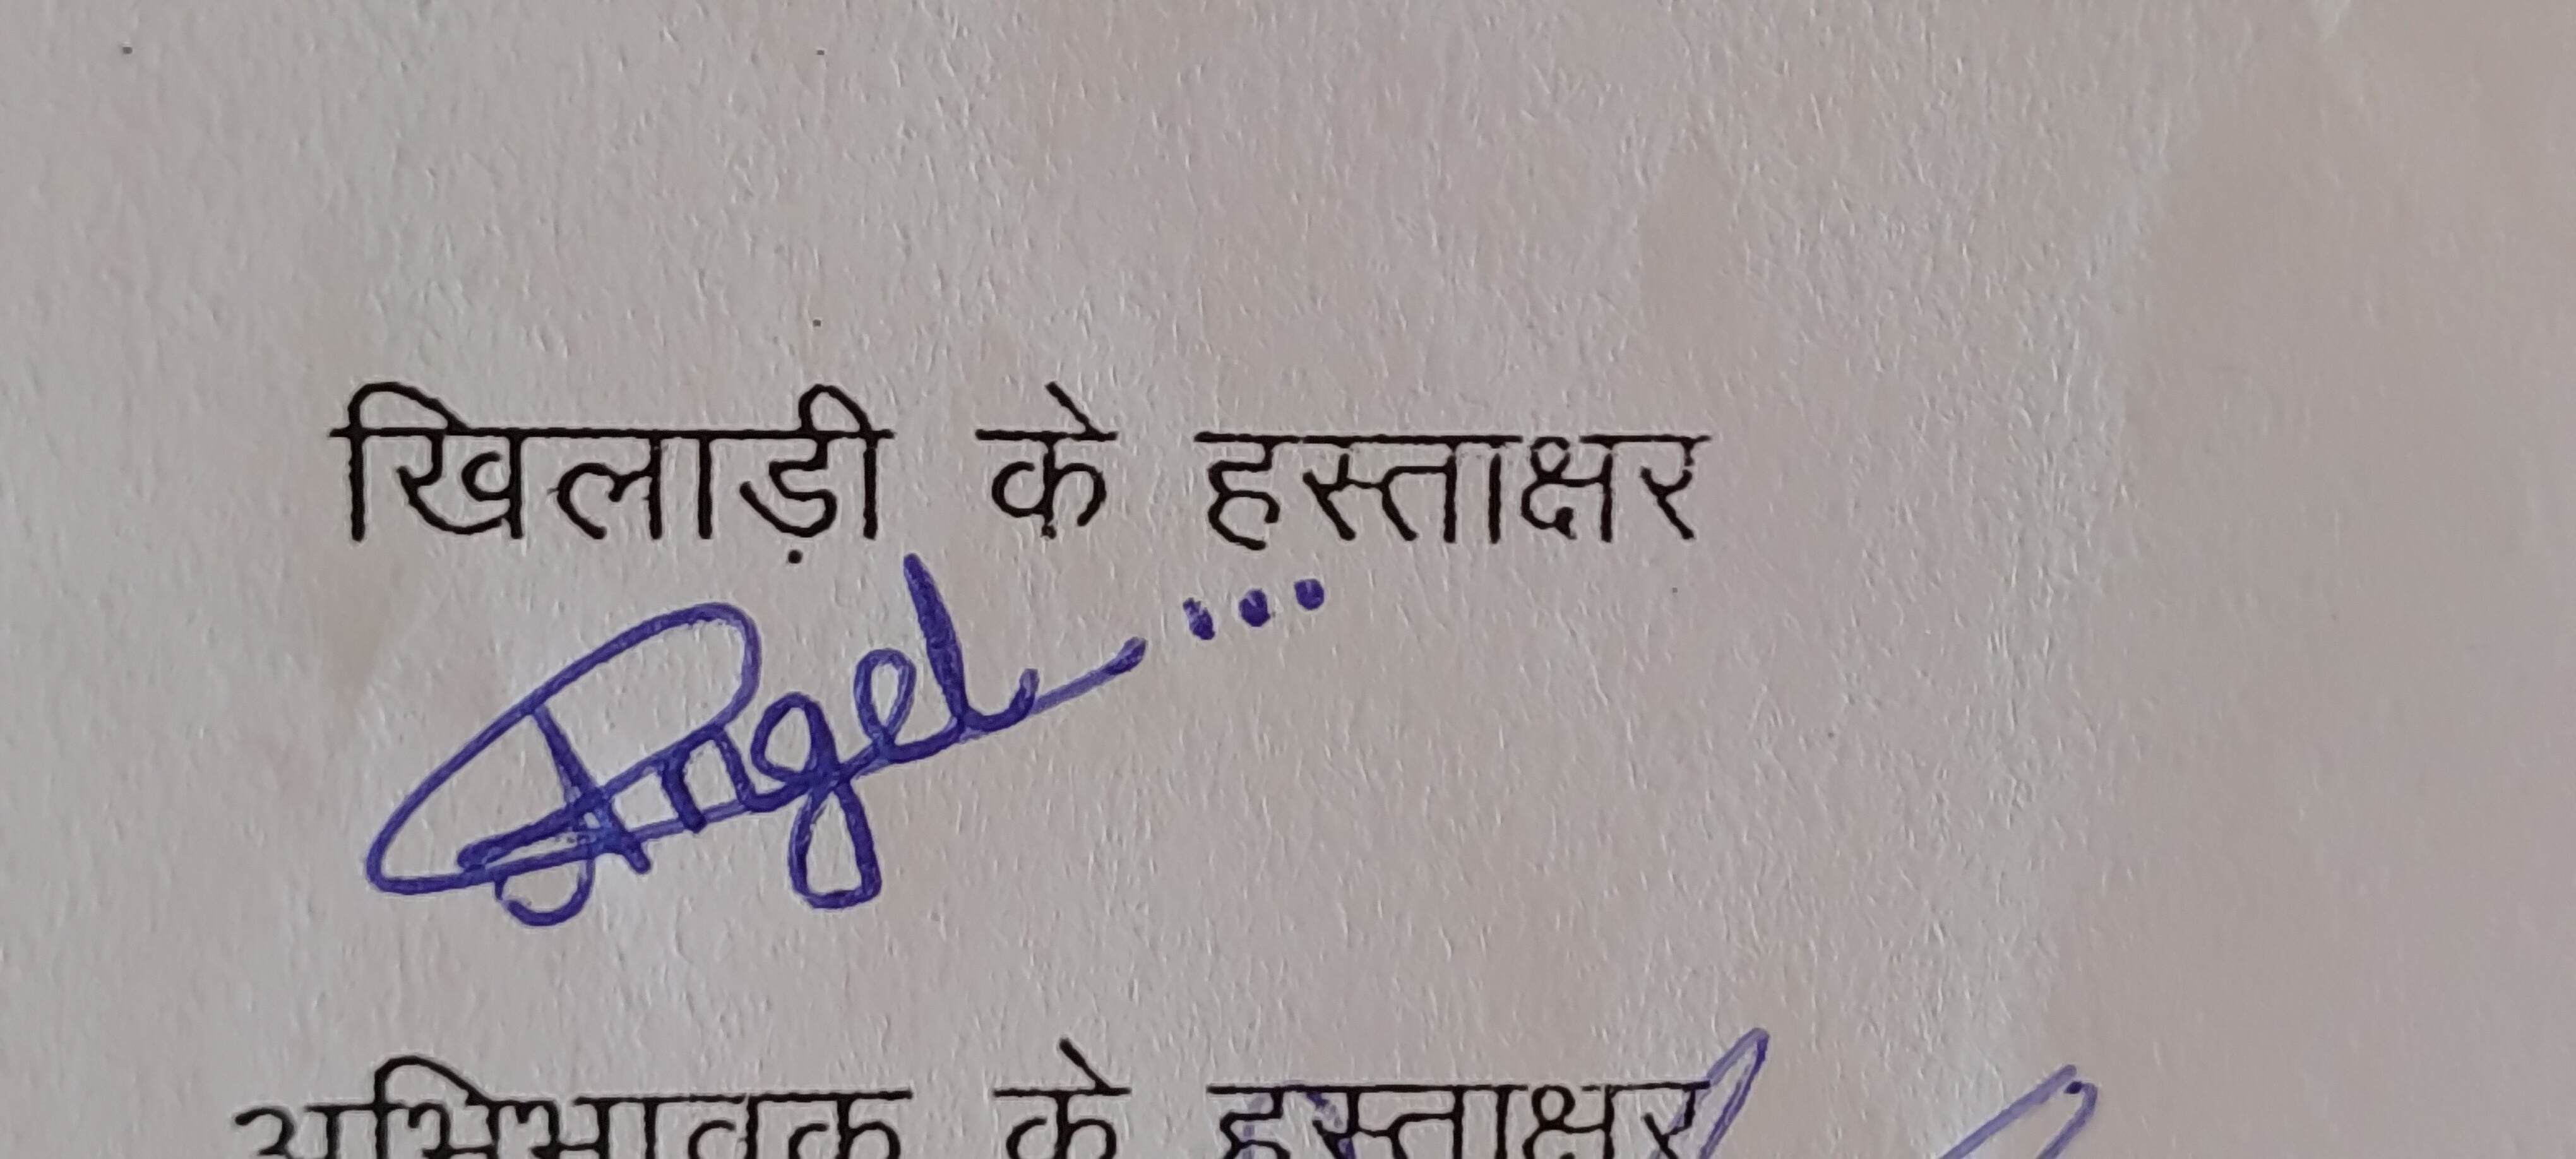 खिलाड़ी के हस्ताक्षर
Angel...
अभिभावक के हस्ताक्षर